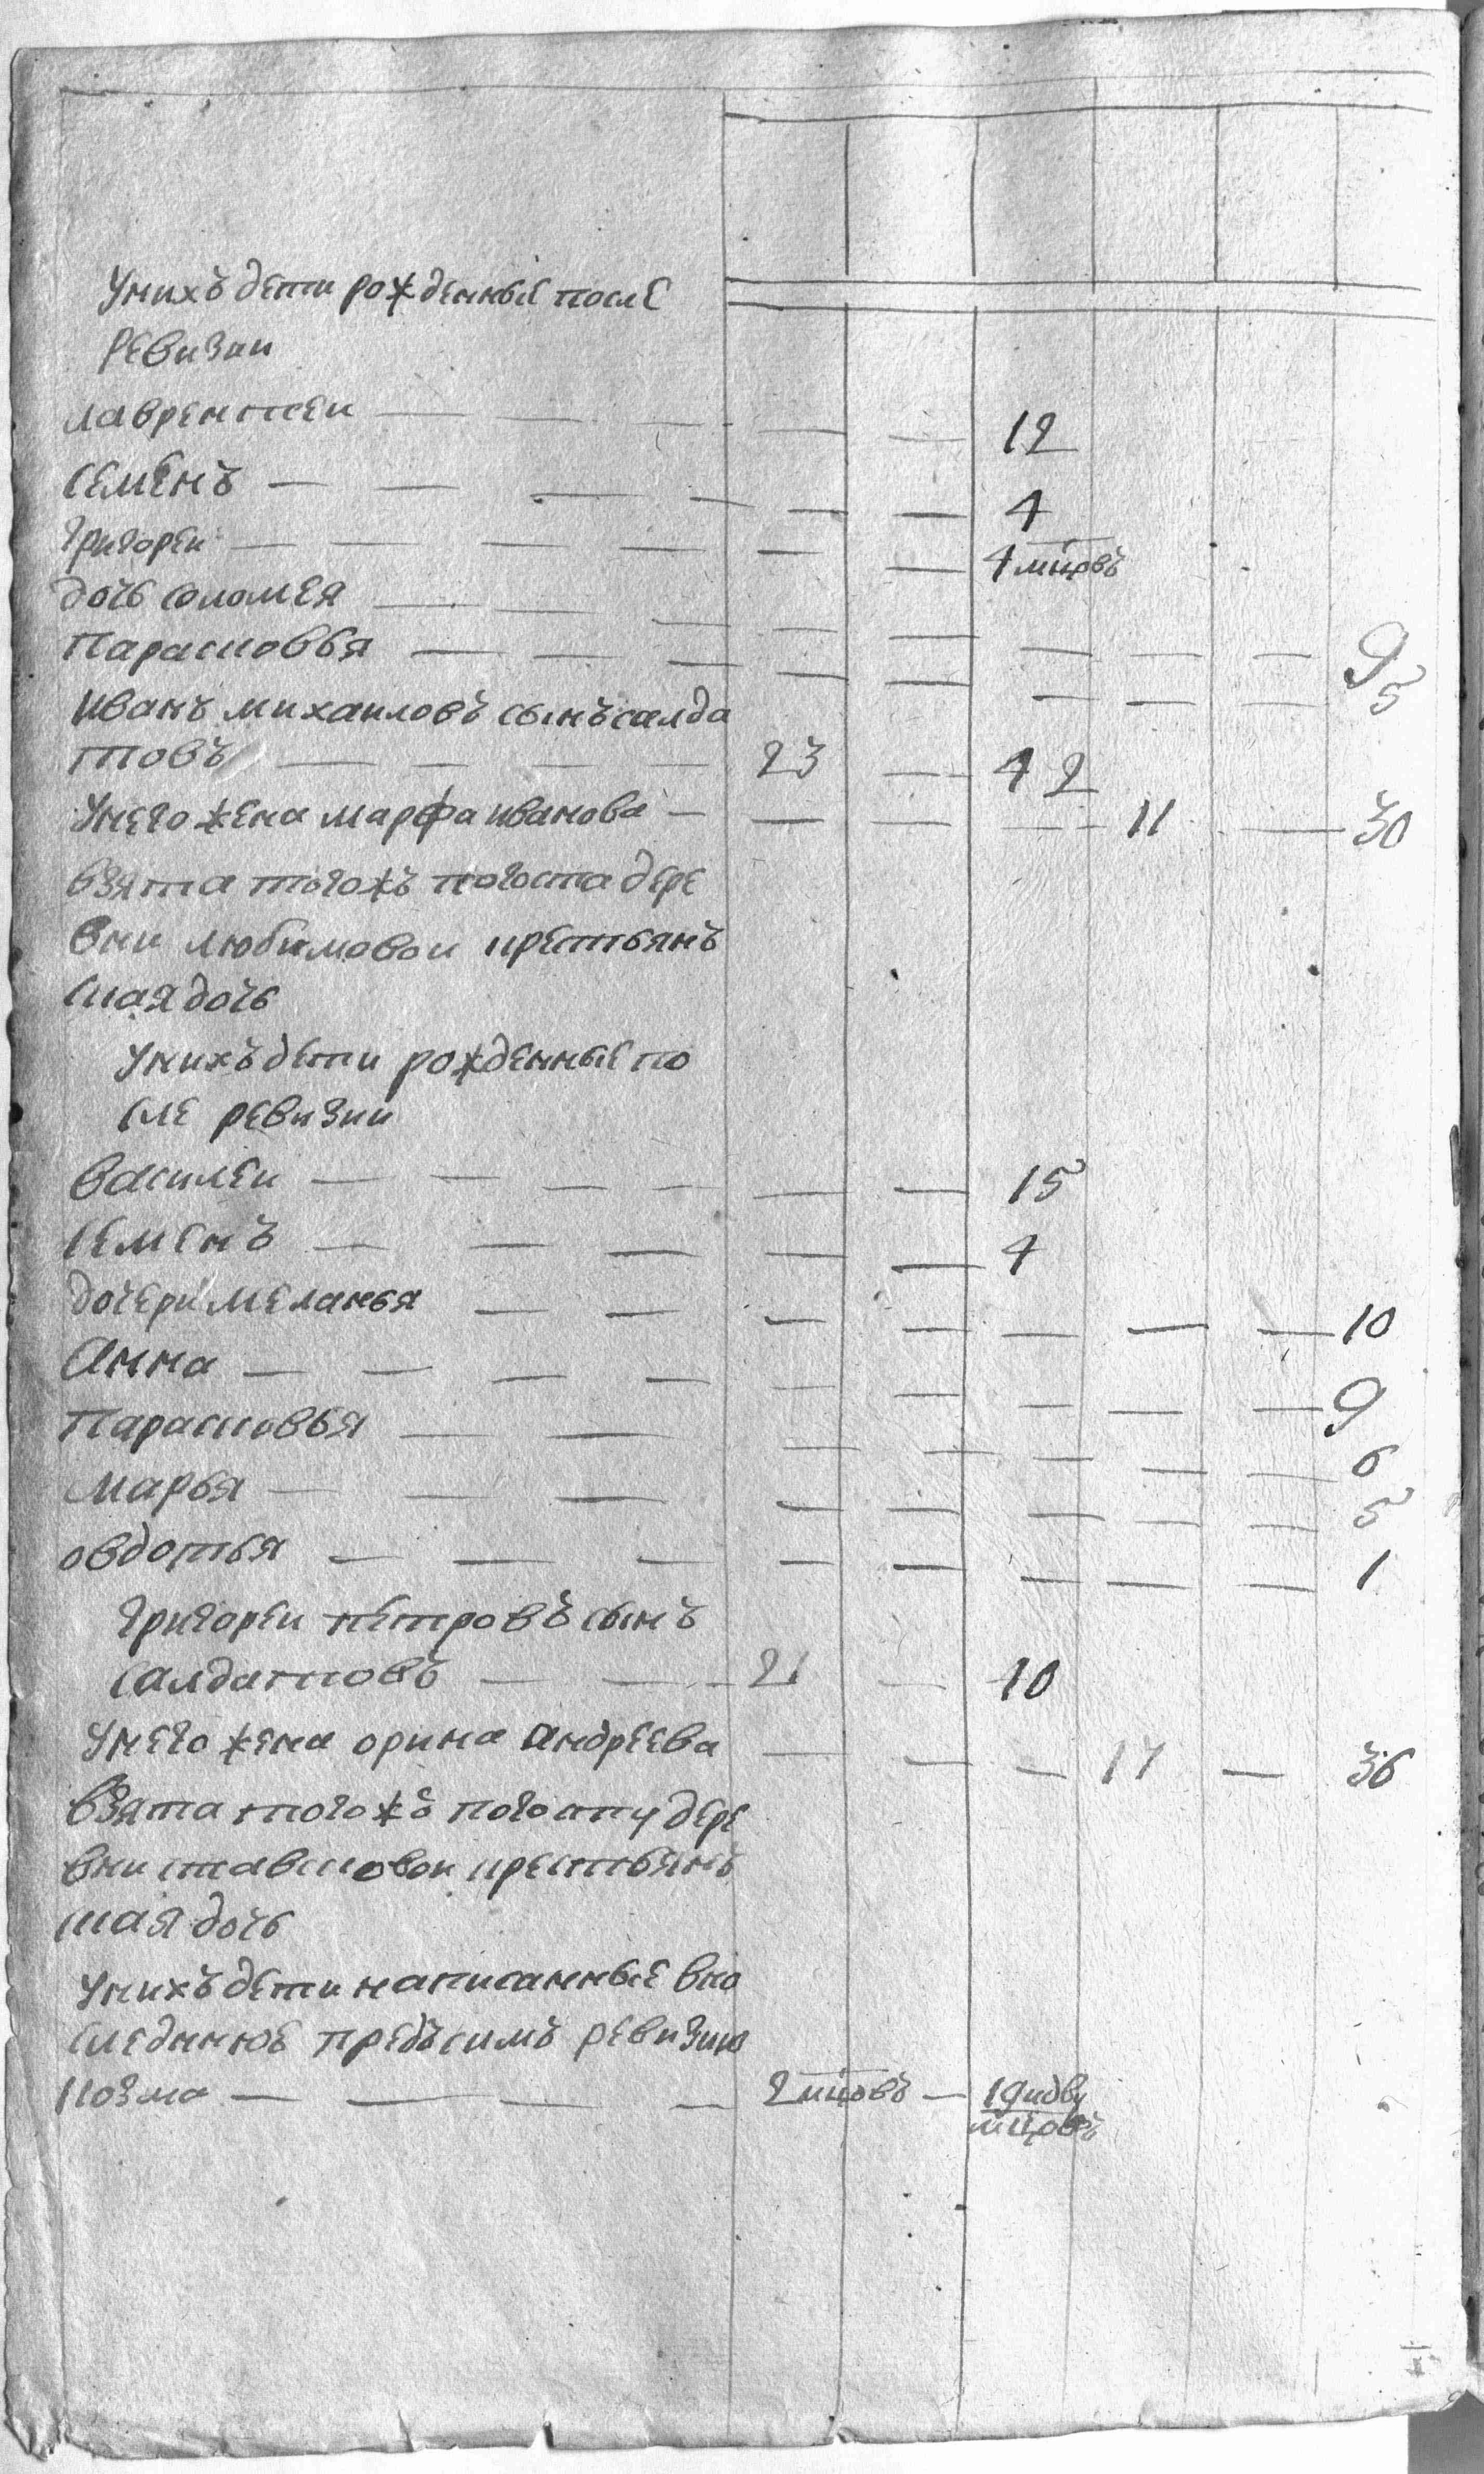 Унихъ дети рожденные после
Ревизии
лаврентеи — — — — — 12
Семенъ — — — — — — 4
Григореи — — — — — — 4 мцовъ
дочь соломея — — — — — — — — 9
Парасковья — — — — — — — — 5
иванъ михаиловъ сынъ салда
товъ — — — — 23 — 42
Унего жена марфа иванова — — — — 11 — 30
взята тогожъ погоста дере
вни любимовои крестьянъ
ская дочь
Унихъ дети рожденные по
сле ревизии
василеи — — — — — — 15
Семенъ — — — — — 4
дочери меланья — — — — — — — 10
Анна — — — — — — — — — 9
Парасковья — — — — — — — 6
марья — — — — — — — — 5
овдотья — — — — — — — — 1
Григореи петровъ сынъ
салдатовъ — — — 21 — 40
Унего жена орина андреева — — — 17 — 36
взята тогожъ погосту дере
вни ставсковои крестьянъ
ская дочь
Унихъ дети написанные впо
следнюю предъсимъ ревизию
козма — — — — 2 мцовъ — 19 идву
мцовъ